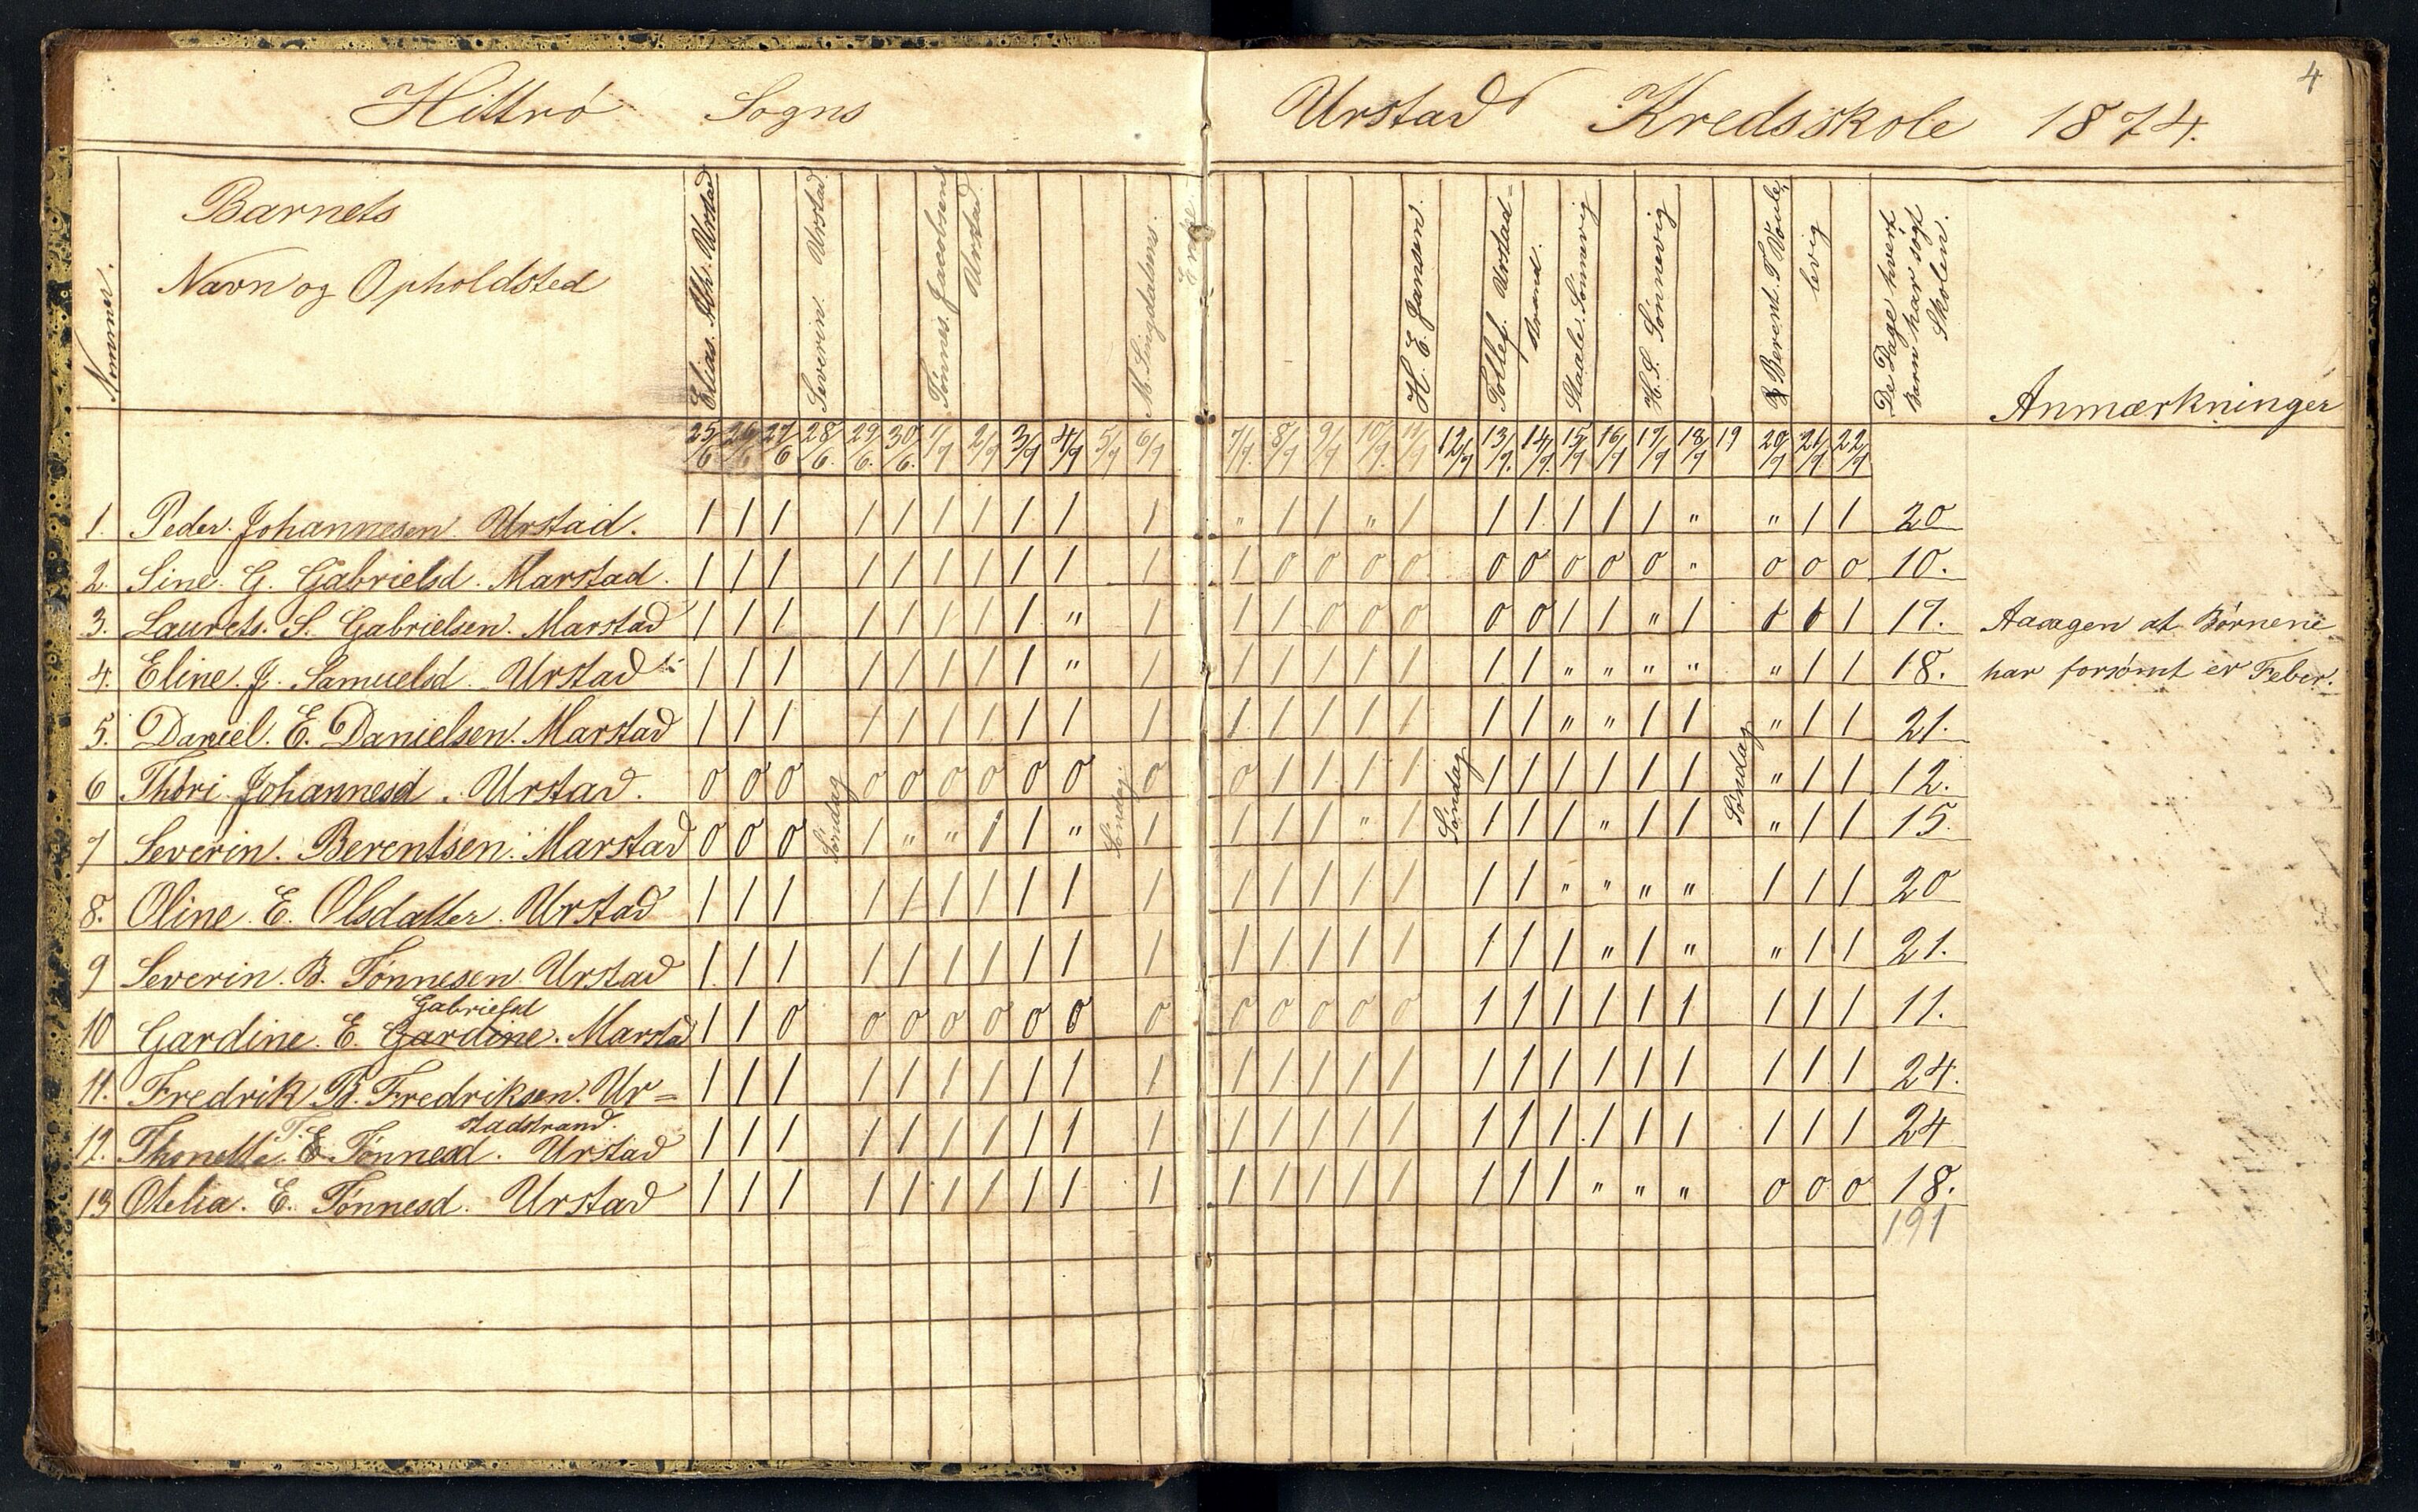 4
Hittrö Sogns Urstad Kredsskole 1874.
Nommer.
Barnets
Navn og Opholdsted
Elias. Urstad
Severin Urstad
Tönnes. Jacobsens
Urstad
H. E. Jansen.
Tollef. Urstad=
strand.
Staale. Sönnevig
H. S. Sönnevig
levig
De Dage hvert
Barn har sögt
Skolen.
Anmærkninger
25/6 26/6 27/6 28/6. 29/6. 30/6. 1/7 2/7 3/7 4/7 5/7 6/7 7/7. 8/7 9/7 10/7. 11/7 12/7 13/7. 14/7. 15/7 16/7 17/7 18/7 19 20/7 21/7 22/7
1. Peder. Johannesen. Urstad. 1 1 1 1 1 1 1 1 1 1 " 1 1 " 1 1 1 1 1 1 " " 1 1 20
2. Sine. G. Gabrielsd. Marstad. 1 1 1 1 1 1 1 1 1 1 1 0 0 0 0 0 0 0 0 0 " 0 0 0 10.
3. Laurets. S. Gabrielsen. Marstad 1 1 1 1 1 1 1 1 " 1 1 1 0 0 0 0 0 1 1 " 1 1 1 1 17.
Aaagen at Börnene
4. Eline. J. Samuelsd. Urstad 1 1 1 1 1 1 1 1 " 1 1 1 1 1 1 1 1 " " " " " 1 1 18.
har forsömt er Feber.
5. Daniel. E. Danielsen. Marstad 1 1 1 1 1 1 1 1 1 1 1 1 1 1 1 1 1 " " 1 1 " 1 1 21.
6 Thöri Johannesd. Urstad. 0 0 0 0 0 0 0 0 0 0 0 1 1 1 1 1 1 1 1 1 1 " 1 1 12.
Söndag
Söndag
Söndag
Söndag
7 Severin. Berentsen. Marstad 0 0 0 1 " " 1 1 " 1 1 1 1 " 1 1 1 1 " 1 1 " 1 1 15.
8. Oline. E. Olsdatter. Urstad 1 1 1 1 1 1 1 1 1 1 1 1 1 1 1 1 1 " " " " 1 1 1 20
9 Severin. B. Tönnesen. Urstad 1 1 1 1 1 1 1 1 1 1 1 1 1 1 1 1 1 1 " 1 " " 1 1 21.
Gabrielsd
10 Gardine. E. Gardine. Marstad 1 1 0 0 0 0 0 0 0 0 0 0 0 0 0 1 1 1 1 1 1 1 1 1 11.
11. Fredrik B. Fredriksen. Ur= 1 1 1 1 1 1 1 1 1 1 1 1 1 1 1 1 1 1 1 1 1 1 1 1 24.
stadstrand.
12. Thonette. T. E. Tönnesd. Urstad 1 1 1 1 1 1 1 1 1 1 1 1 1 1 1 1 1 1 1 1 1 1 1 1 24
13 Otelia. E. Tönnesd. Urstad 1 1 1 1 1 1 1 1 1 1 1 1 1 1 1 1 1 1 " " " 0 0 0 18.
191